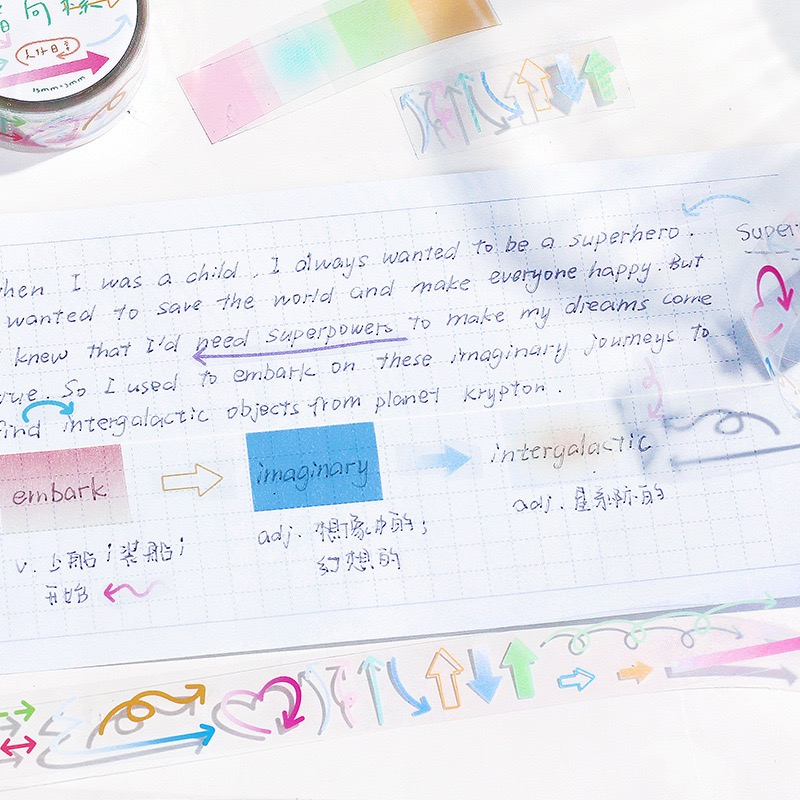 向
人公日常
15mm×5mm
when I was a child, I always wanted to be a superhero.
wanted to save the world and make everyone happy. But
knew that I'd need superpowers to make my dreams come
rue. So I used to embark on these imaginary journeys to
find intergalactic objects from planet krypton.
Super
embark
imaginary
intergalactic
v. 上船；装船；
开始
adj. 想象中的；
幻想的
adj. 星系际的